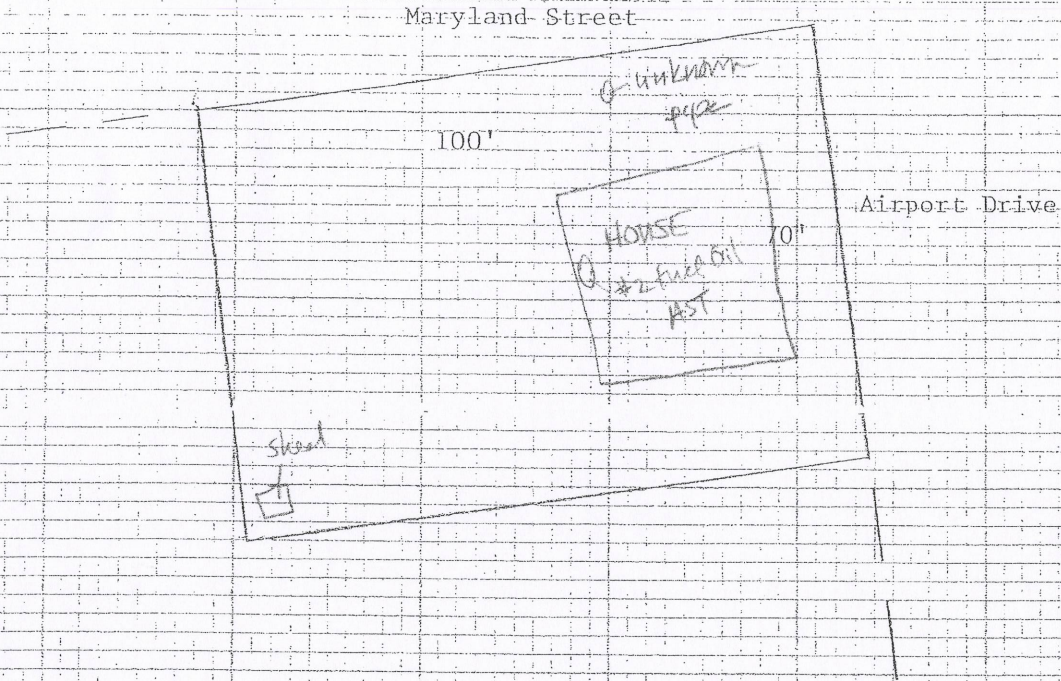 Maryland Street
unknown
pipe
100'
Airport Drive
HOUSE
70'
#2 Fuel Oil
AST
shed